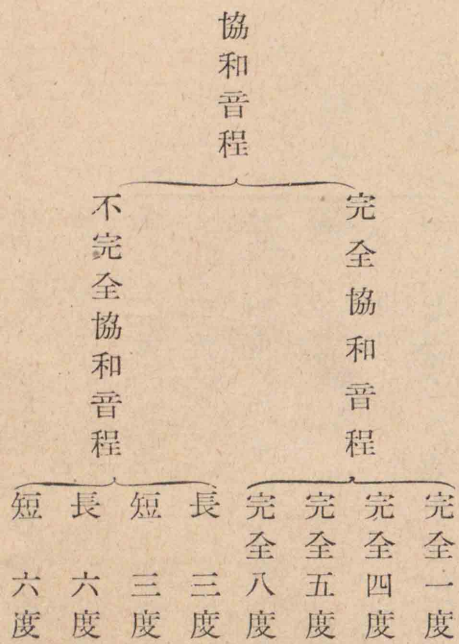 協和音程
完全協和音程
完全一度
完全四度
完全五度
完全八度
不完全協和音程
長三度
短三度
長六度
短六度